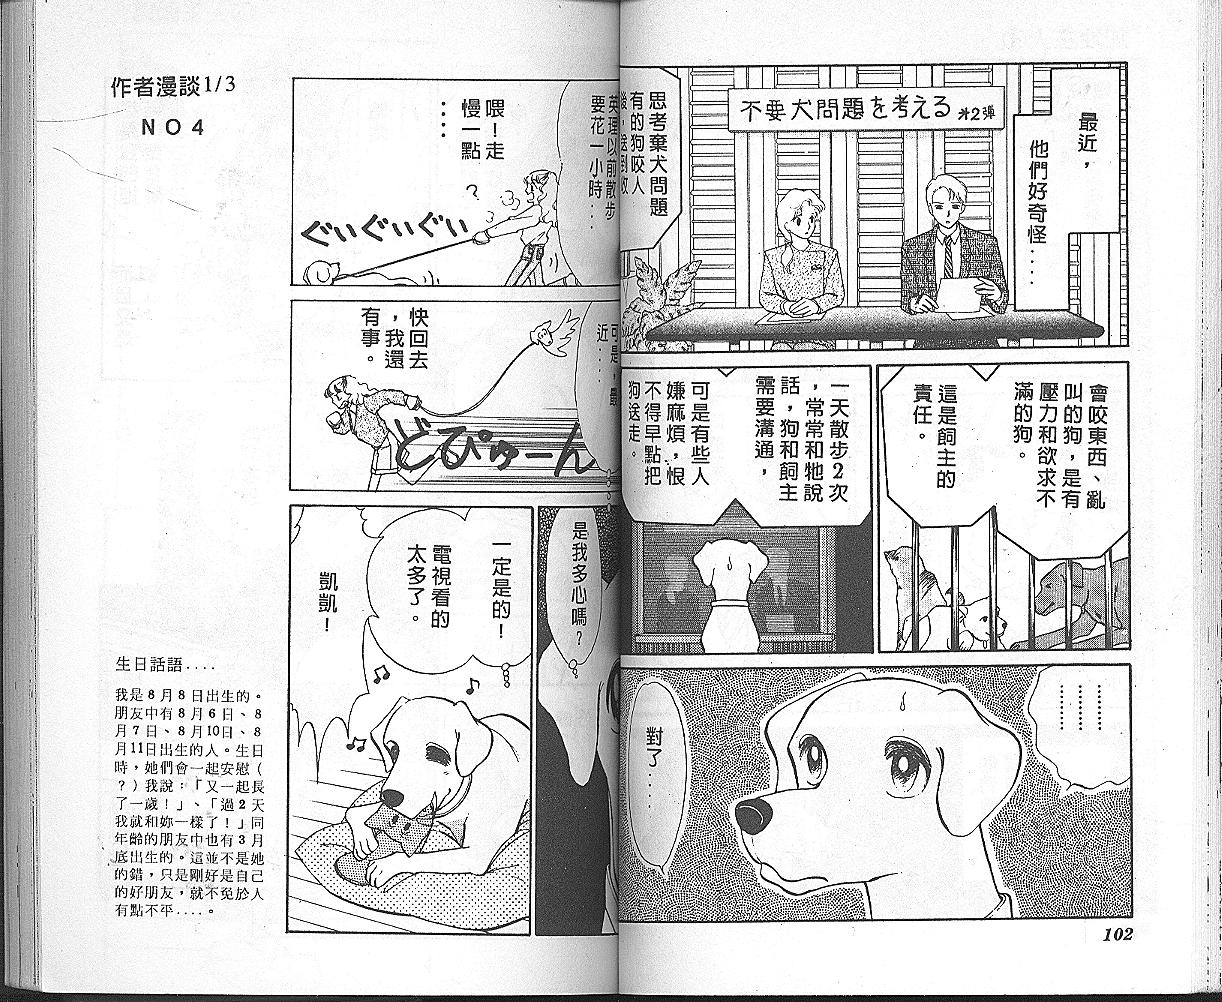 最近，
他們好奇怪‥‥
不要犬問題を考える 第2彈
思考棄犬問題
有的狗咬人
會咬東西、亂
叫的狗，是有
壓力和欲求不
滿的狗。
這是飼主的
責任。
一天散步2次
，常常和牠說
話，狗和飼主
需要溝通，
可是有些人
嫌麻煩，恨
不得早點把
狗送走。
‥‥‥‥
‥‥‥‥
‥‥‥‥
對了‥‥
102
英理以前散步
要花一小時‥‥
喂！走
慢一點
‥‥
?
ぐいぐいぐい
可是，最
近‥‥
快回去
，我還
有事。
どぴゅーん
是我多心嗎？
一定是的！
電視看的
太多了。
凱凱！
作者漫談1/3
NO4
生日話語‥‥
我是8月8日出生的。
朋友中有8月6日、8
月7日、8月10日、8
月11日出生的人。生日
時，她們會一起安慰（
？）我說：「又一起長
了一歲！」、「過2天
我就和妳一樣了！」同
年齡的朋友中也有3月
底出生的。這並不是她
的錯，只是剛好是自己
的好朋友，就不免於人
有點不平‥‥。